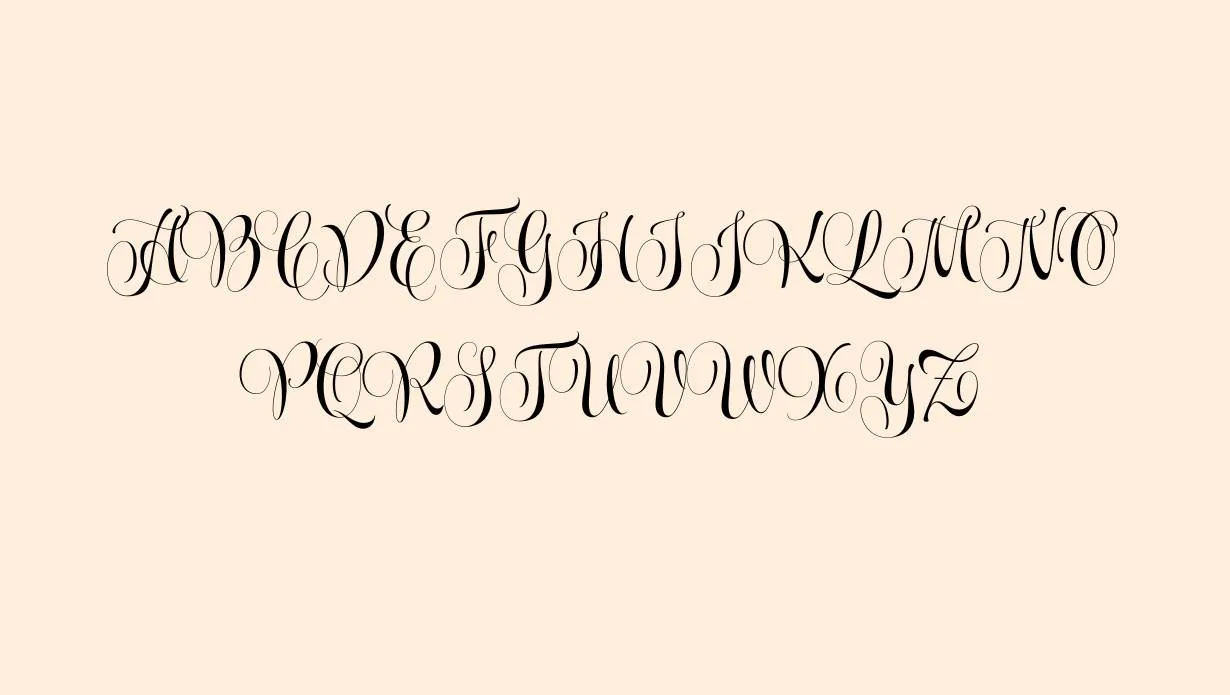 ABCDEFGHIJKLMNO
PQRSTUVWXYZ